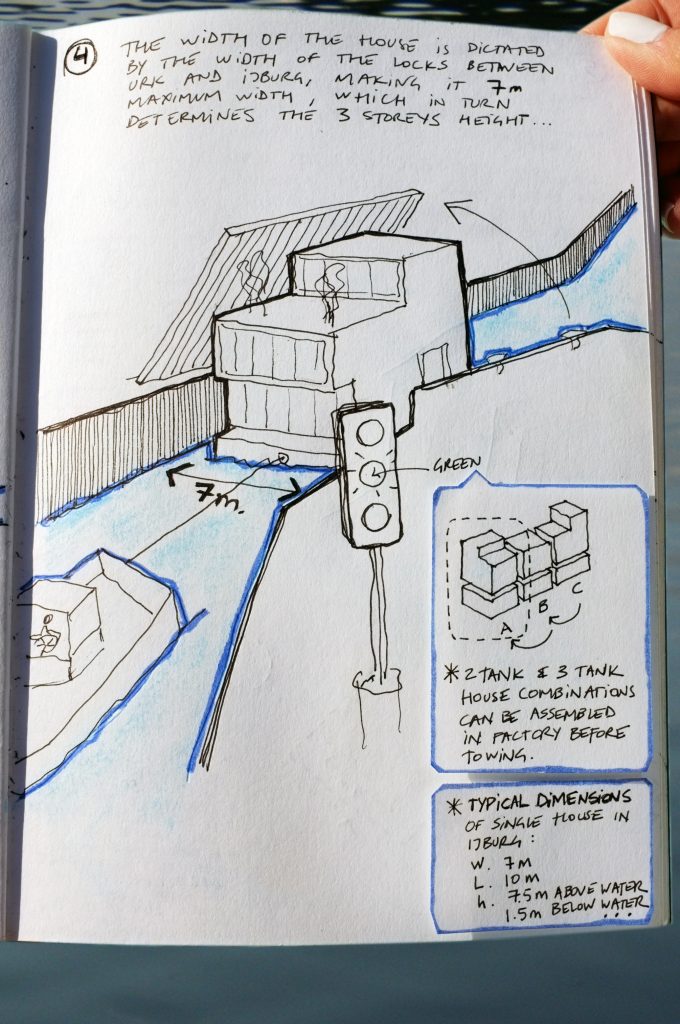 4
THE WIDTH OF THE HOUSE IS DICTATED
BY THE WIDTH OF THE LOCKS BETWEEN
URK AND IJBURG, MAKING IT 7m
MAXIMUM WIDTH, WHICH IN TURN
DETERMINES THE 3 STOREYS HEIGHT...
GREEN
7m.
A
B
C
* 2 TANK & 3 TANK
HOUSE COMBINATIONS
CAN BE ASSEMBLED
IN FACTORY BEFORE
TOWING.
* TYPICAL DIMENSIONS
OF SINGLE HOUSE IN
IJBURG:
W. 7m
L. 10m
h. 7.5m ABOVE WATER
1.5m BELOW WATER
...